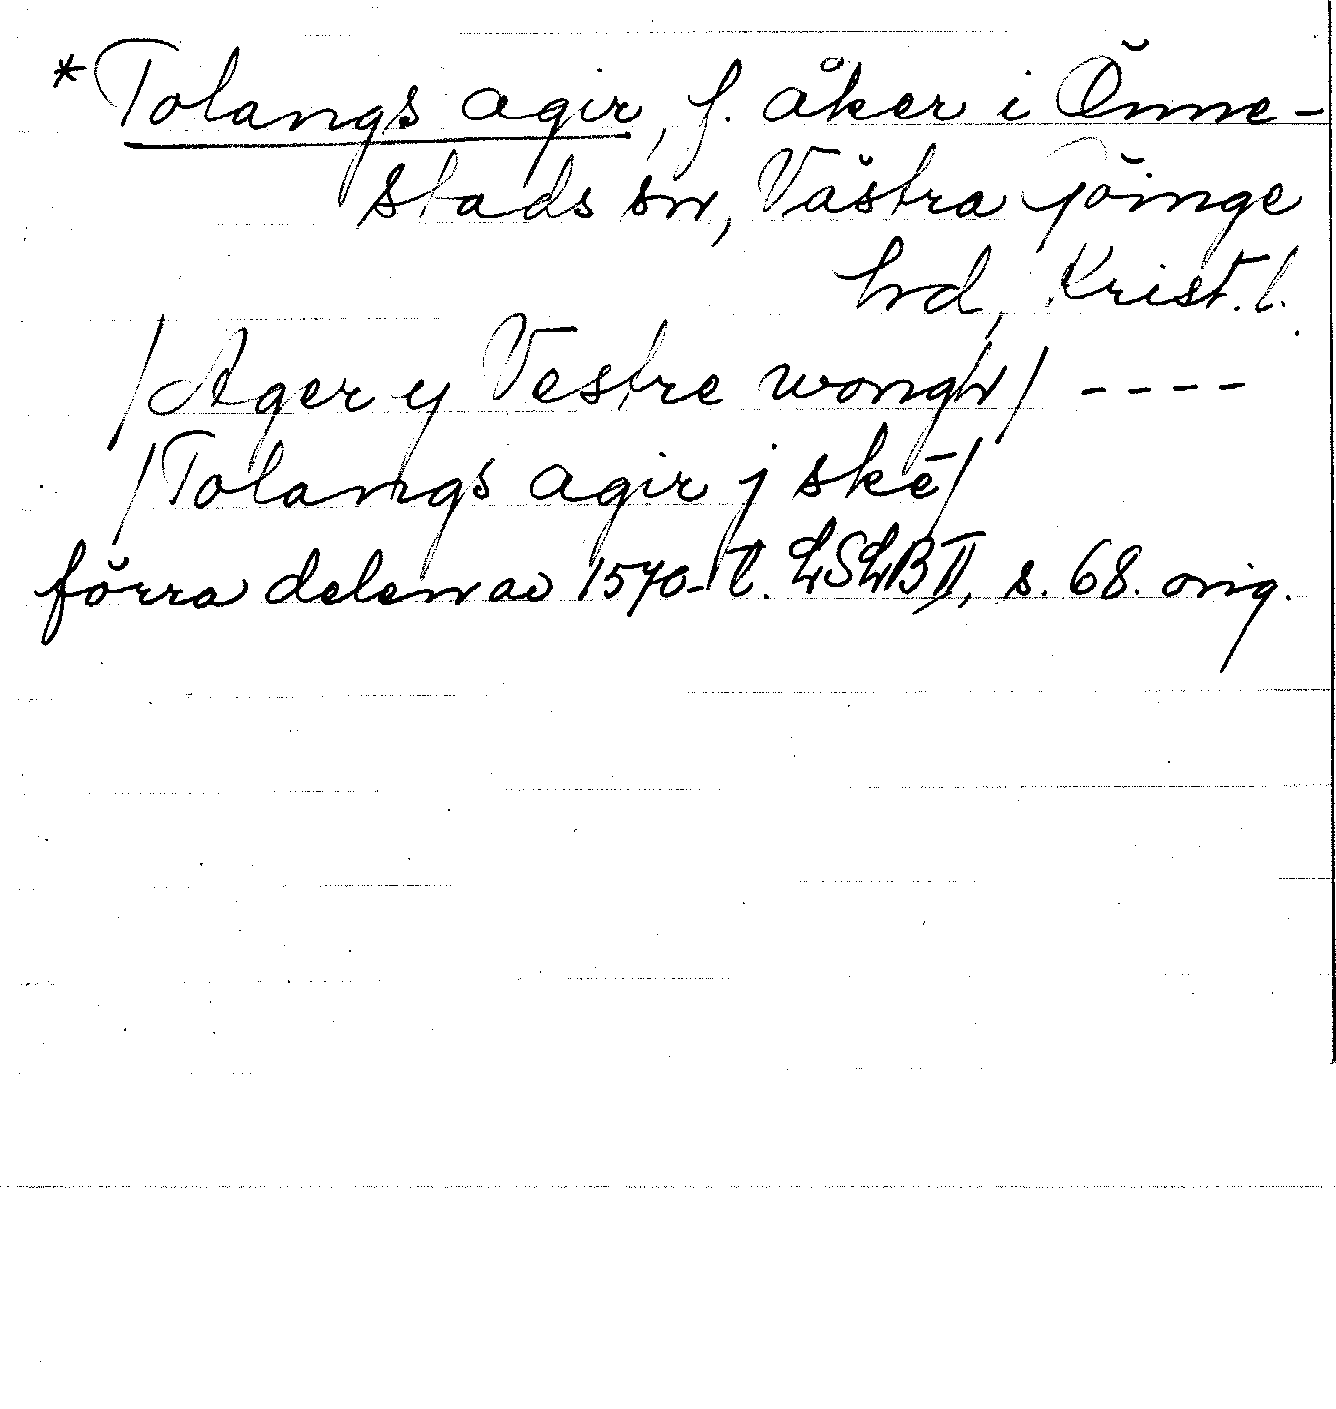 *Tolangs agir, f. åker i Önne-
stads sn, Västra Göinge
hd, Krist. l.
/Ager y Vestre wongh/ ----
/Tolangs agir j skē/
förra delen av 1570-t. LSLB II, s. 68. orig.